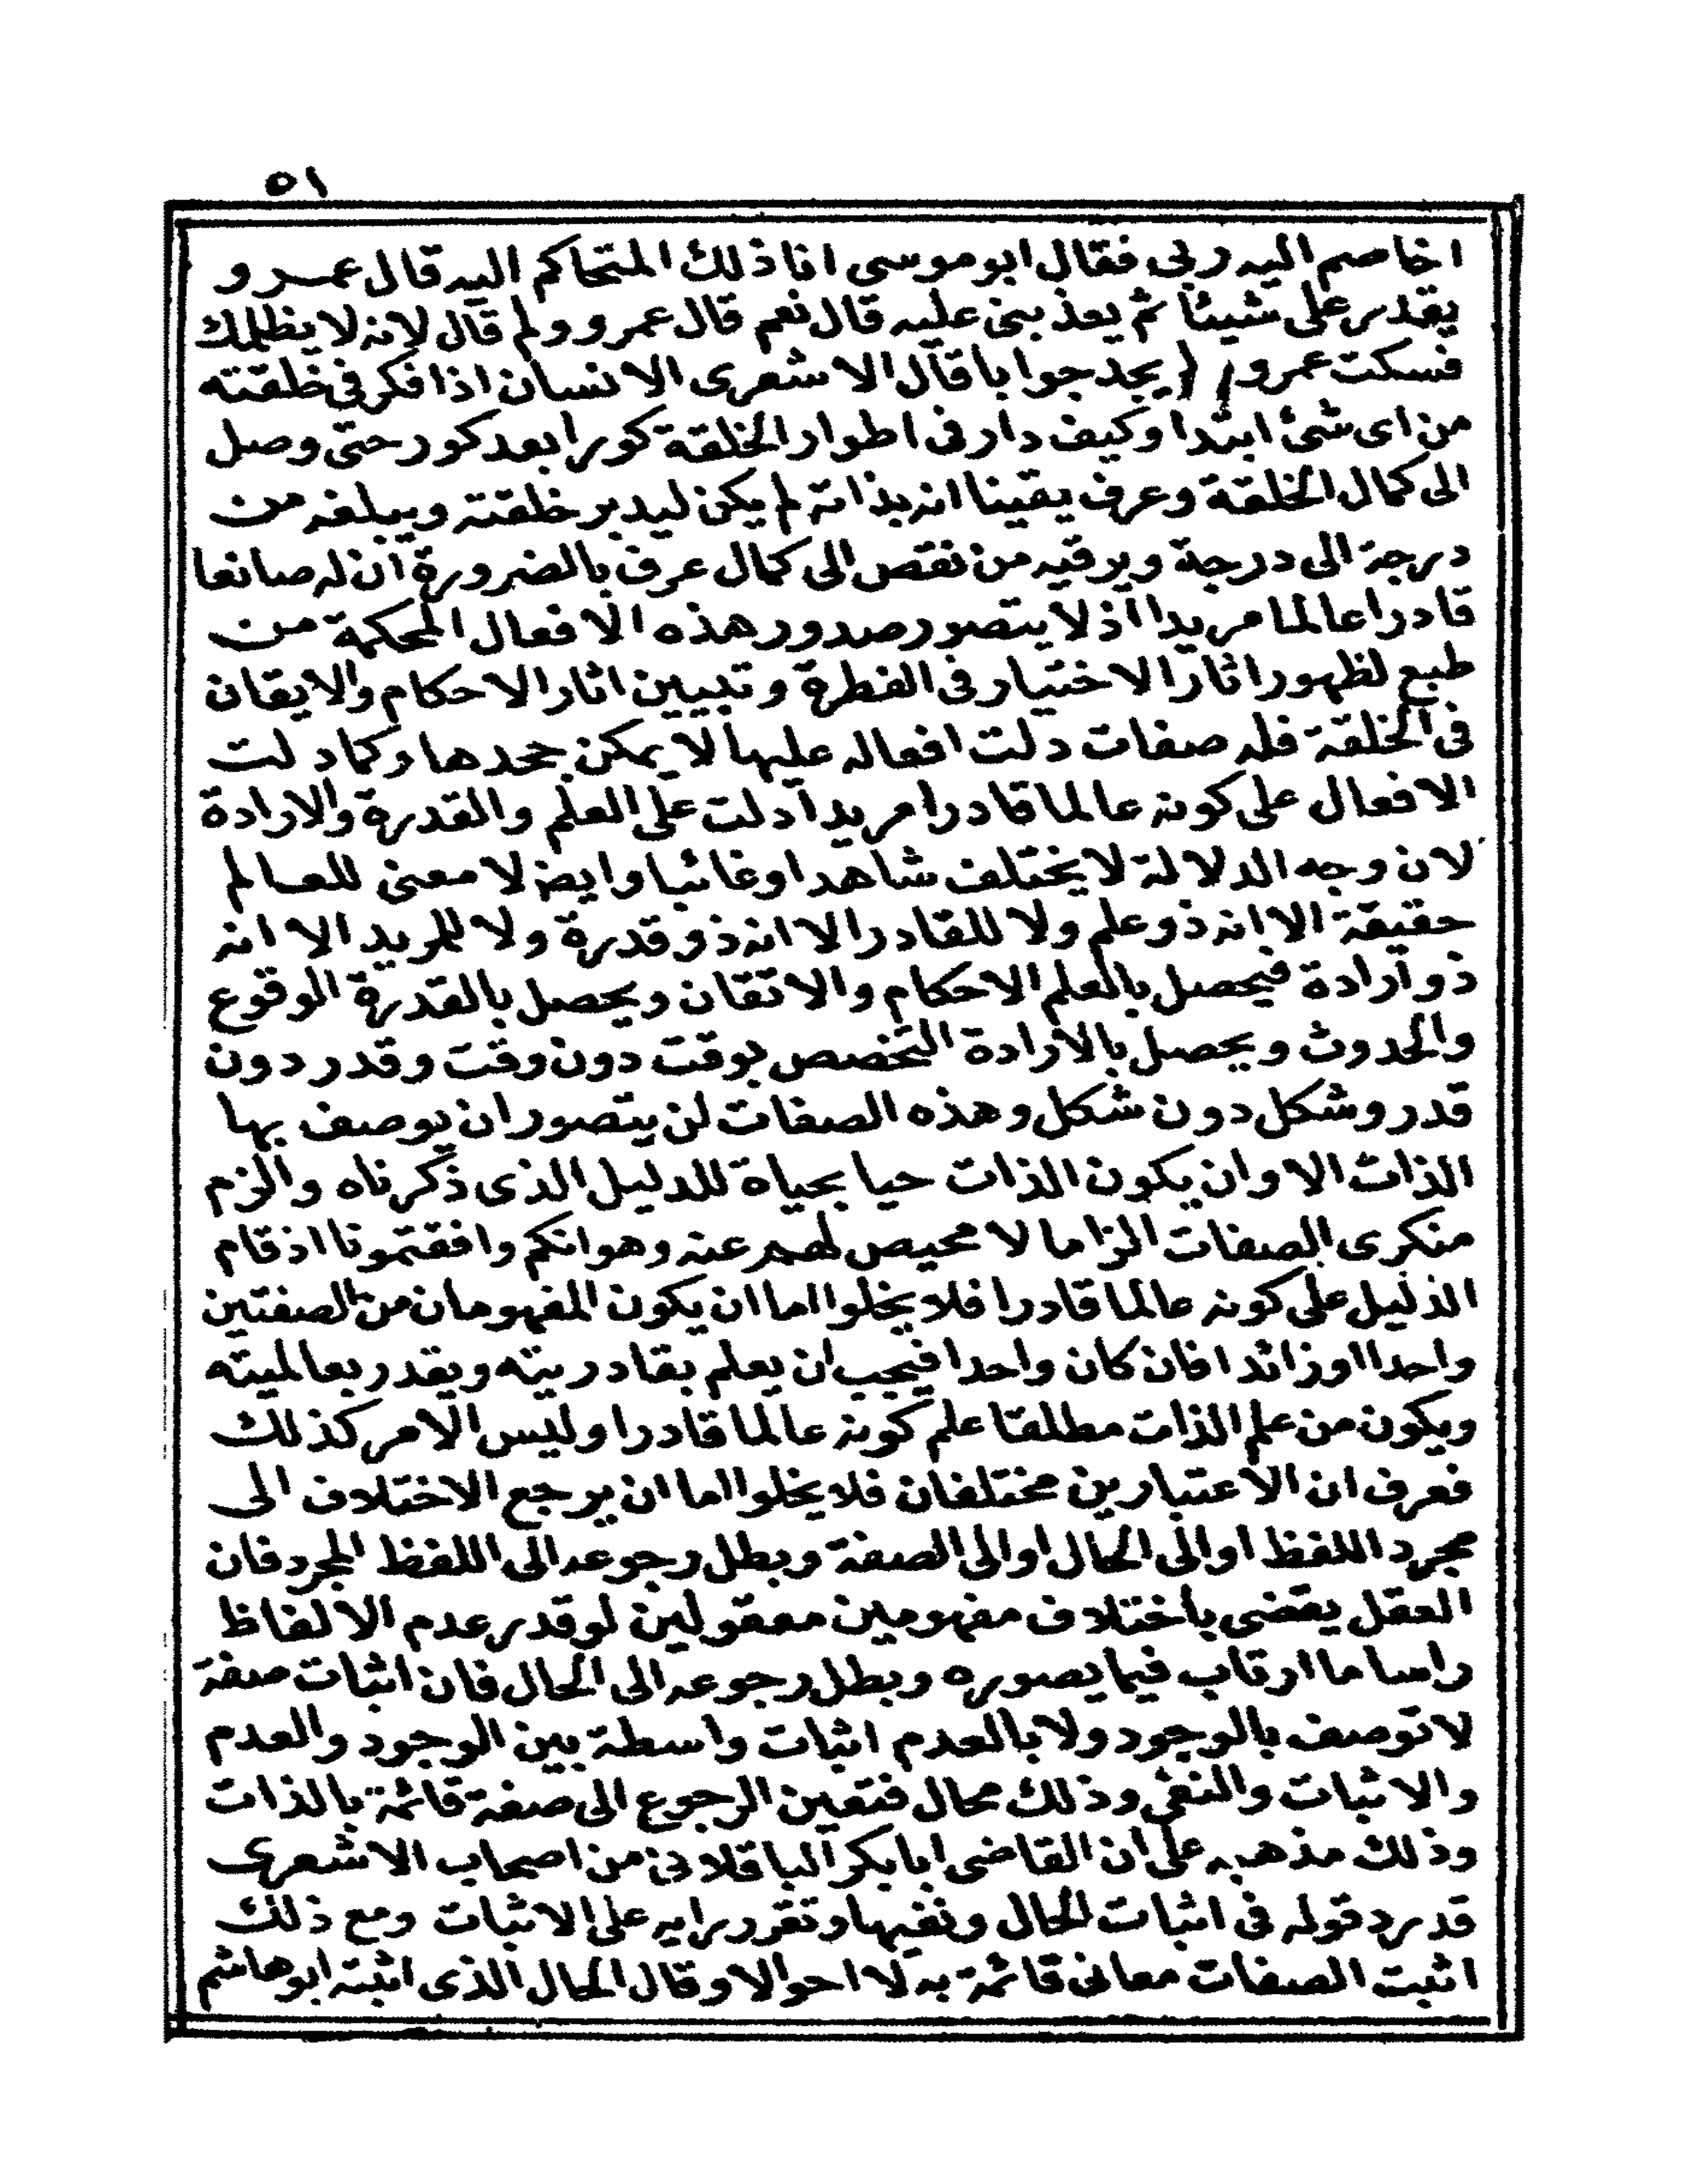 ٥١
اخاصم اليه ربى فقال ابو موسى انا ذلك المتحاكم اليه قال عمرو
يقدر على شيئا ثم يعذبنى عليه قال نعم قال عمرو ولم قال لانه لا يظلمك
فسكت عمرو ولم يجد جوابا قال الاشعرى الانسان اذا فكر فى خلقته
من اى شئ ابتدا وكيف دار فى اطوار الخلقة كورا بعد كور حتى وصل
الى كمال الخلقة وعرف يقينا انه بذاته لم يكن ليدبر خلقته ويبلغه من
درجة الى درجة ويرقيه من نقص الى كمال عرف بالضرورة ان له صانعا
قادرا عالما مريدا اذ لا يتصور صدور هذه الافعال المحكمة من
طبع لظهور اثار الاختيار فى الفطرة وتبيين اثار الاحكام والايقان
فى الخلقة فله صفات دلت افعاله عليها لا يمكن جحدها وكما دلت
الافعال على كونه عالما قادرا مريدا دلت على العلم والقدرة والارادة
لان وجه الدلالة لا يختلف شاهدا وغائبا وايض لا معنى للعالم
حقيقة الا انه ذو علم ولا للقادر الا انه ذو قدرة ولا للمريد الا انه
ذو ارادة فيحصل بالعلم الاحكام والاتقان ويحصل بالقدرة الوقوع
والحدوث ويحصل بالارادة التخصص بوقت دون وقت وقدر دون
قدر وشكل دون شكل وهذه الصفات لن يتصور ان يوصف بها
الذات الا وان يكون الذات حيا بحياة للدليل الذى ذكرناه والزم
منكرى الصفات الزاما لا محيص لهم عنه وهو انكم وافقتمونا اذ قام
الدليل على كونه عالما قادرا فلا يخلوا اما ان يكون المفهومان من الصفتين
واحدا او زائدا فان كان واحدا فيجب ان يعلم بقادريته ويقدر بعالميته
ويكون من علم الذات مطلقا علم كونه عالما قادرا وليس الامر كذلك
فعرف ان الاعتبارين مختلفان فلا يخلوا اما ان يرجع الاختلاف الى
مجرد اللفظ او الى الحال او الى الصفة وبطل رجوعه الى اللفظ المجرد فان
العقل يقضى باختلاف مفهومين معقولين لو قدر عدم الالفاظ
راسا ما ارتاب فيما يصوره وبطل رجوعه الى الحال فان اثبات صفة
لا توصف بالوجود ولا بالعدم اثبات واسطة بين الوجود والعدم
والاثبات والنفى وذلك محال فتعين الرجوع الى صفة قائمة بالذات
وذلك مذهبه على ان القاضى ابا بكر الباقلانى من اصحاب الاشعرى
قد رد قوله فى اثبات الحال ونفيها وتقرر رايه على الاثبات ومع ذلك
اثبت الصفات معانى قائمة به لا احوالا وقال الحال الذى اثبته ابو هاشم